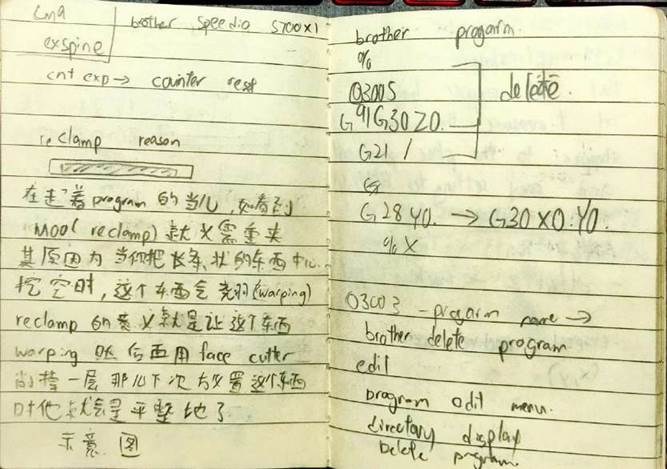 brother speedio S700X1
exspine
cnt exp → counter reset
reclamp reason
在走着program的当儿 如看到
M00(reclamp) 就必需重夹
其原因为 当你把长条状的东西中心
挖空时，这个东西会 (warping)
reclamp的意义就是让这个东西
warping 然后再用face cutter
一层 那儿下次放置这个东西
时他就会是平整地了
示意图
brother progarm
%
O3005
G91G30Z0. delete.
G21 /
G28 Y0. → G30 X0. Y0.
% X
O3003 - progarm name →
brother delete program
edit
program edit menu.
directory display
Delete program.